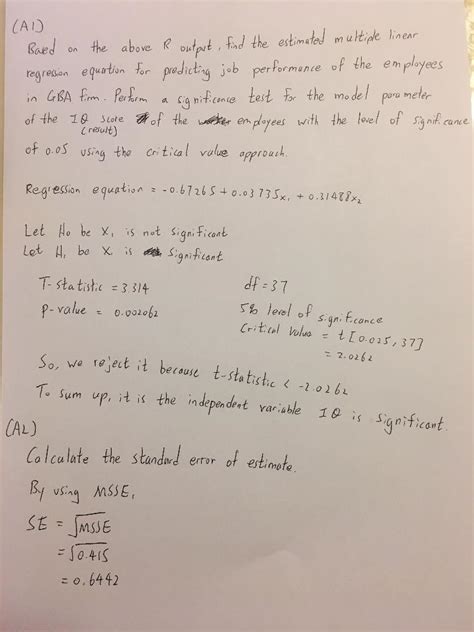 (A1)
Based on the above R output, find the estimated multiple linear
regression equation for predicting job performance of the employees
in GBA firm. Perform a significance test for the model parameter
of the IQ score of the employees with the level of significance
(result)
of 0.05 using the critical value approach.
Regression equation = -0.67265 + 0.03735x₁ + 0.31488x₂
Let H₀ be X₁ is not significant
Let H₁ be X₁ is significant
T-statistic = 3.314 df = 37
P-value = 0.002062 5% level of significance
Critical value = t[0.025, 37]
= 2.0262
So, we reject it because t-statistic < -2.0262
To sum up, it is the independent variable IQ is significant.
(A2)
Calculate the standard error of estimate.
By using MSSE,
SE = √MSSE
= √0.415
= 0.6442